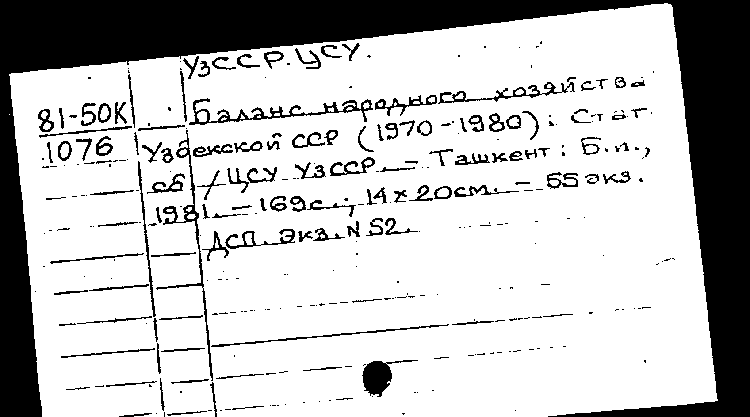 УзССР. ЦСУ.
81-50К
1076
Баланс народного хозяйства
Узбекской ССР (1970-1980): Стат.
сб. / ЦСУ УзССР. - Ташкент: Б.и.,
1981. - 169с.; 14x20см. - 55экз.
ДСП. Экз. N 52.